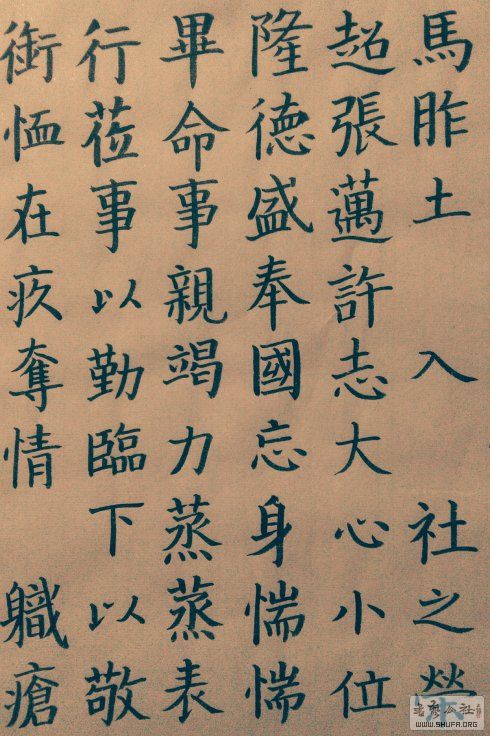 馬胙土 入 社之榮
超張邁許志大心小位
隆德盛奉國忘身惴惴
畢命事親竭力蒸蒸表
行莅事以勤臨下以敬
衘恤在疚奪情 軄瘡
WWW.SHUFA.ORG